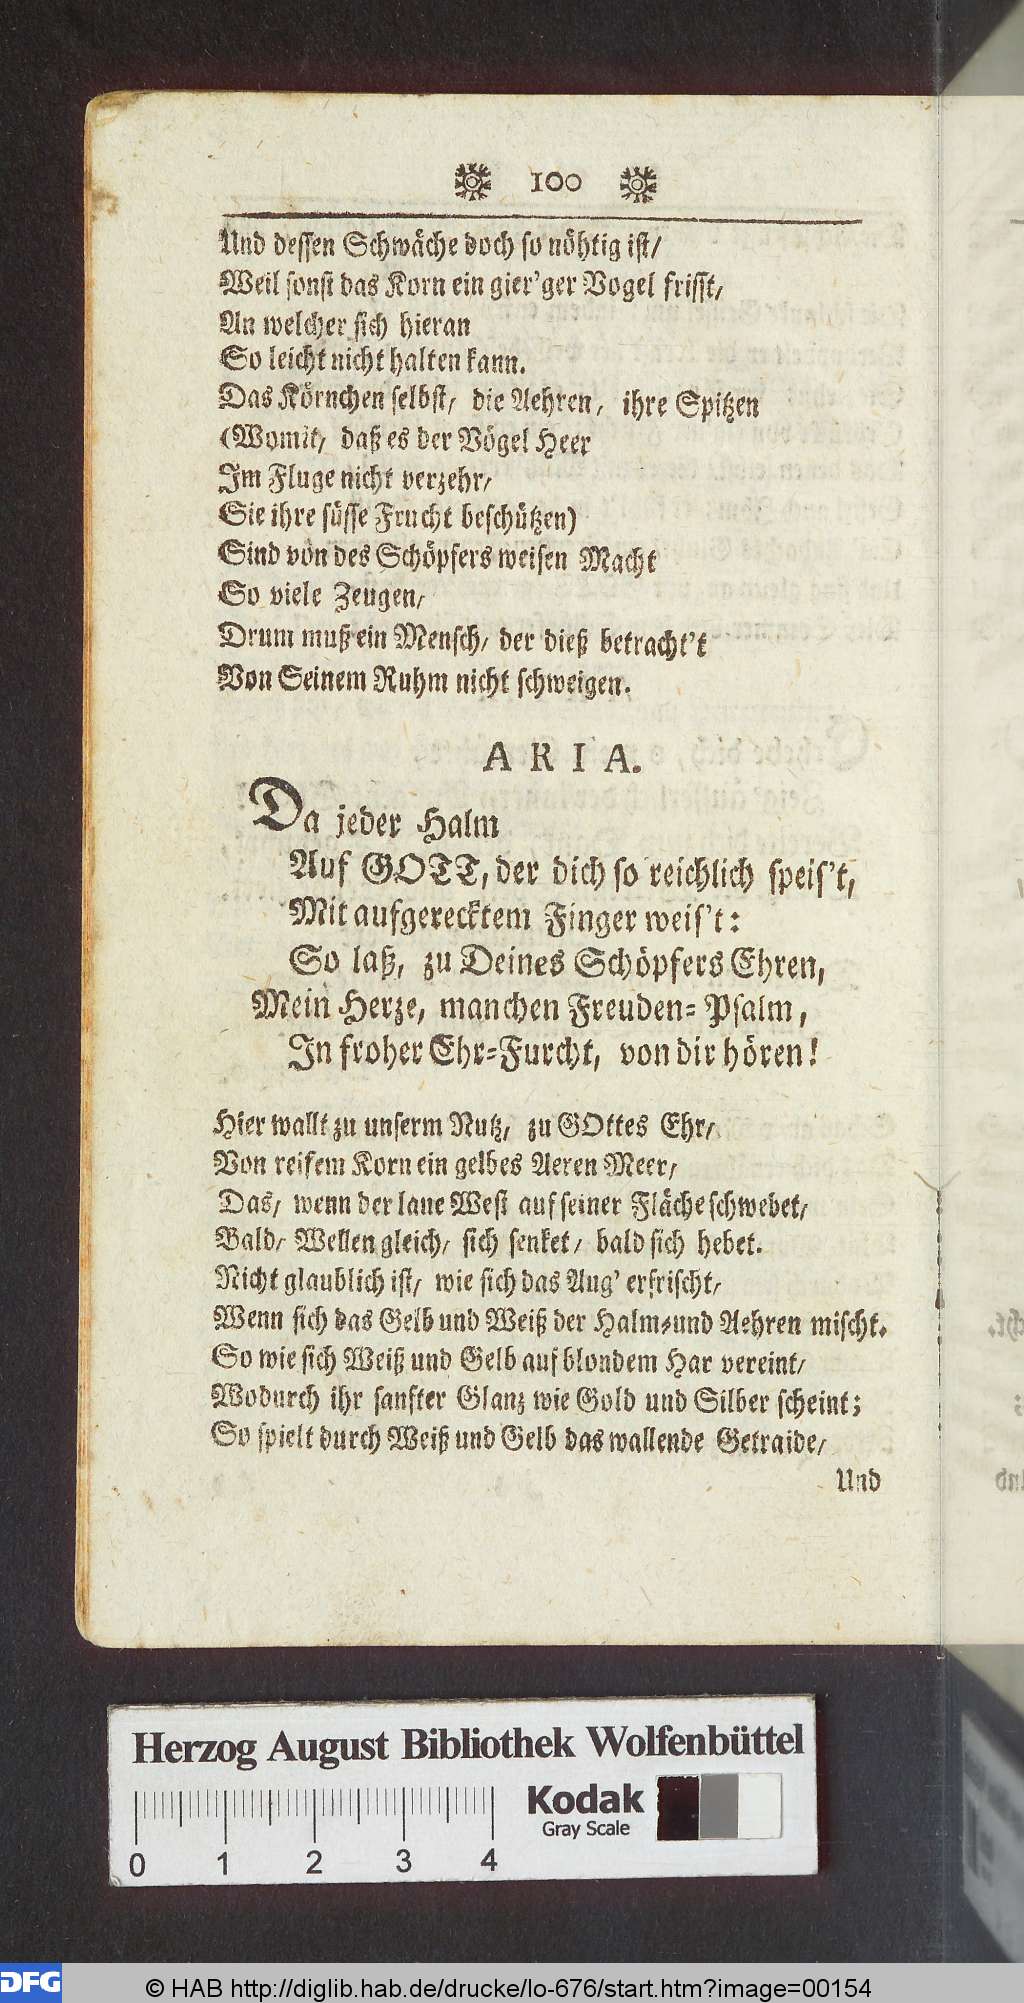 100
Und dessen Schwäche doch so nöhtig ist/
Weil sonst das Korn ein gier'ger Vogel frisst/
An welcher sich hieran
So leicht nicht halten kann.
Das Körnchen selbst/ die Aehren, ihre Spitzen
(Womit/ daß es der Vögel Heer
Im Fluge nicht verzehr/
Sie ihre süsse Frucht beschützen)
Sind von des Schöpfers weisen Macht
So viele Zeugen/
Drum muß ein Mensch/ der dieß betracht't
Von Seinem Ruhm nicht schweigen.
ARIA.
Da jeder Halm
Auf GOTT, der dich so reichlich speis't,
Mit aufgerecktem Finger weis't:
So laß, zu Deines Schöpfers Ehren,
Mein Herze, manchen Freuden-Psalm,
In froher Ehr-Furcht, von dir hören!
Hier wallt zu unserm Nutz/ zu GOttes Ehr/
Von reifem Korn ein gelbes Aeren Meer/
Das/ wenn der laue West auf seiner Fläche schwebet/
Bald/ Wellen gleich/ sich senket/ bald sich hebet.
Nicht glaublich ist/ wie sich das Aug' erfrischt/
Wenn sich das Gelb und Weiß der Halm-und Aehren mischt.
So wie sich Weiß und Gelb auf blondem Har vereint/
Wodurch ihr sanfter Glanz wie Gold und Silber scheint;
So spielt durch Weiß und Gelb das wallende Getraide/
Und
Herzog August Bibliothek Wolfenbüttel
Kodak
Gray Scale
0 1 2 3 4
DFG
© HAB http://diglib.hab.de/drucke/lo-676/start.htm?image=00154